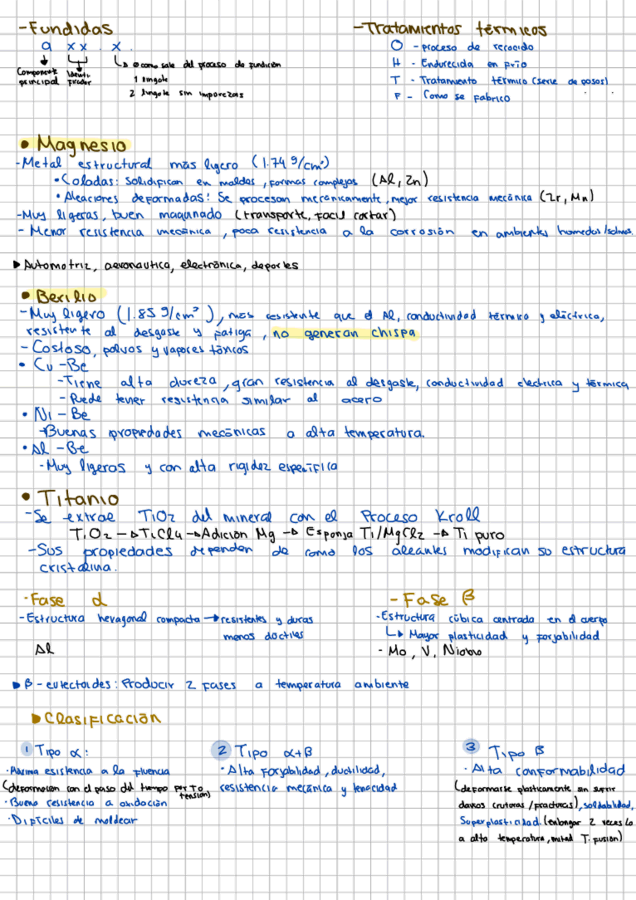 -Fundidas
a xx . x
Componente principal
Identificador
0 como sale del proceso de fundición
1 lingote
2 lingote sin impurezas
-Tratamientos térmicos
O - proceso de recocido
H - Endurecida en frío
T - Tratamiento térmico (serie de pasos)
F - Como se fabrico
• Magnesio
-Metal estructural más ligero (1.74 g/cm³)
•Coladas: Solidifican en moldes, formas complejas (Al, Zn)
•Aleaciones deformadas: Se procesan mecánicamente, mejor resistencia mecánica (Zr, Mn)
-Muy ligeras, buen maquinado (transporte, facil cortar)
- Menor resistencia mecánica, poca resistencia a la corrosión en ambientes humedos/salinos.
▶ Automotriz, aeronautica, electrónica, deportes
• Berilio
-Muy ligero (1.85 g/cm³), más resistente que el Al, conductividad térmica y eléctrica,
resistente al desgaste y fatiga, no generan chispa
- Costoso, polvos y vapores tóxicos
• Cu-Be
-Tiene alta dureza, gran resistencia al desgaste, conductividad electrica y térmica
- Puede tener resistencia similar al acero
• Ni-Be
-Buenas propiedades mecánicas a alta temperatura.
• Al-Be
-Muy ligeros y con alta rigidez especifica
• Titanio
-Se extrae TiO2 del mineral con el Proceso Kroll
TiO2 → TiCl4 → Adición Mg → Esponja Ti/MgCl2 → Ti puro
-Sus propiedades dependen de como los aleantes modifican su estructura
cristalina.
·Fase α
-Estructura hexagonal compacta → resistentes y duras
menos dúctiles
Al
- Fase β
-Estructura cúbica centrada en el cuerpo
↳ Mayor plasticidad y forjabilidad
- Mo, V, Niobio
▶ β-eutectoides: Producir 2 fases a temperatura ambiente
▶ Clasificación
1 Tipo α:
·Máxima esistencia a la fluencia
(deformación con el paso del tiempo por T o tensión)
·Buena resistencia a oxidación
·Difíciles de moldear
2 Tipo α+β
·Alta forjabilidad, ductilidad,
resistencia mecánica y tenacidad
3 Tipo β
·Alta conformabilidad
(deformarse plasticamente sin sufrir
daños (roturas/fracturas), soldabilidad,
Superplasticidad. (enlongar 2 veces Lo
a alta temperatura, mitad T. fusión)